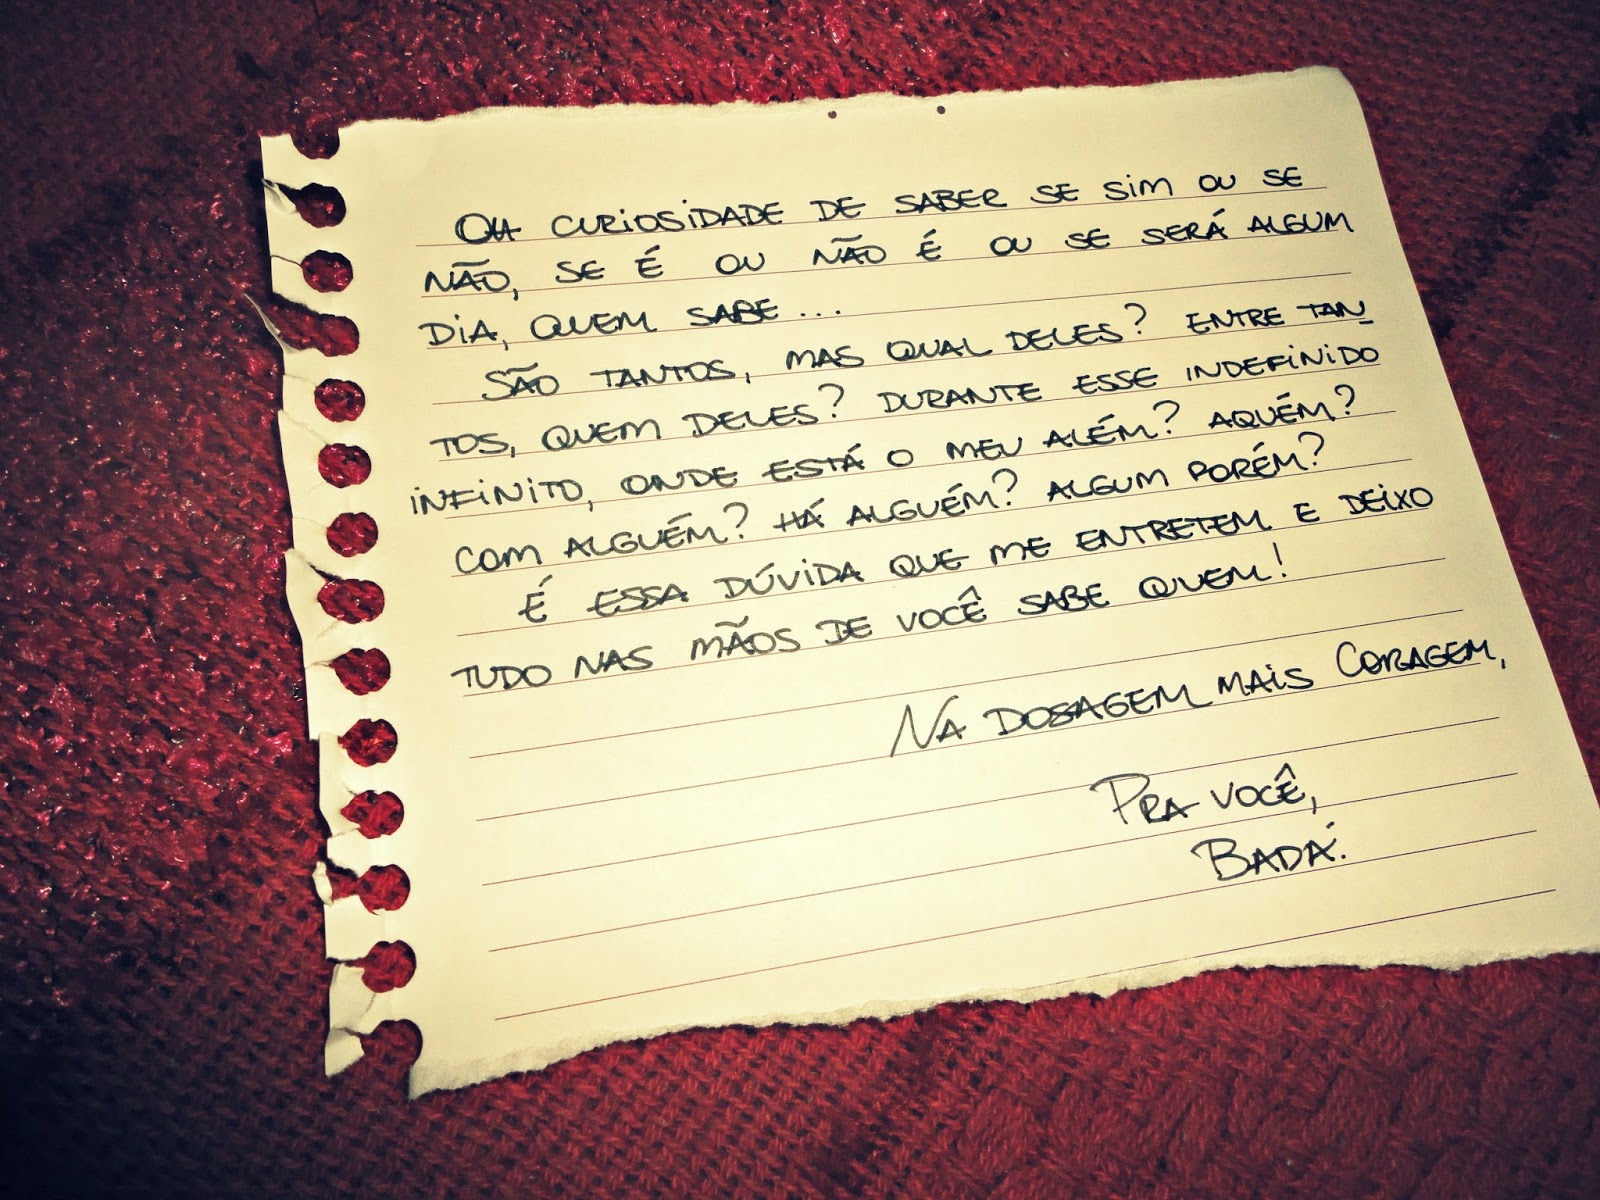 OH CURIOSIDADE DE SABER SE SIM OU SE
NÃO, SE É OU NÃO É OU SE SERÁ ALGUM
DIA, QUEM SABE...
SÃO TANTOS, MAS QUAL DELES? ENTRE TAN
TOS, QUEM DELES? DURANTE ESSE INDEFINIDO
INFINITO, ONDE ESTÁ O MEU ALÉM? AQUÉM?
COM ALGUÉM? HÁ ALGUÉM? ALGUM PORÉM?
É ESSA DÚVIDA QUE ME ENTRETEM E DEIXO
TUDO NAS MÃOS DE VOCÊ SABE QUEM!
NA DOSAGEM MAIS CORAGEM,
PRA VOCÊ,
BADÁ.